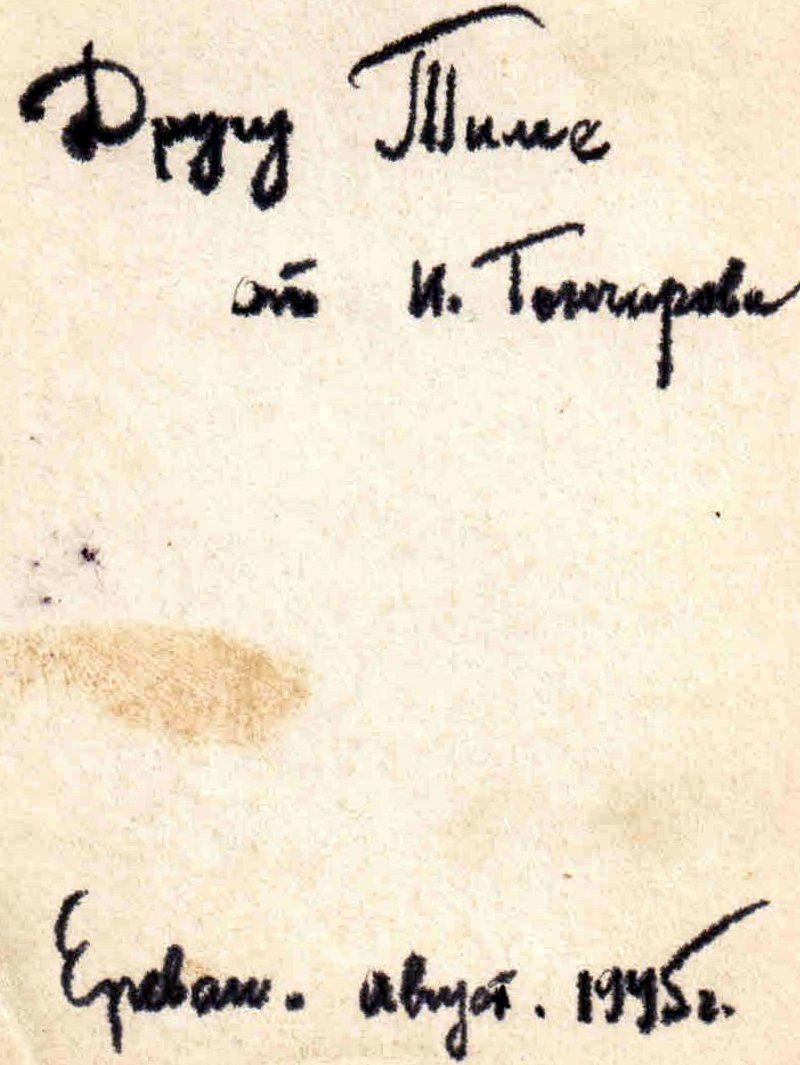 Другу Тиме
от И. Гончарова
Ереван. август. 1945 г.